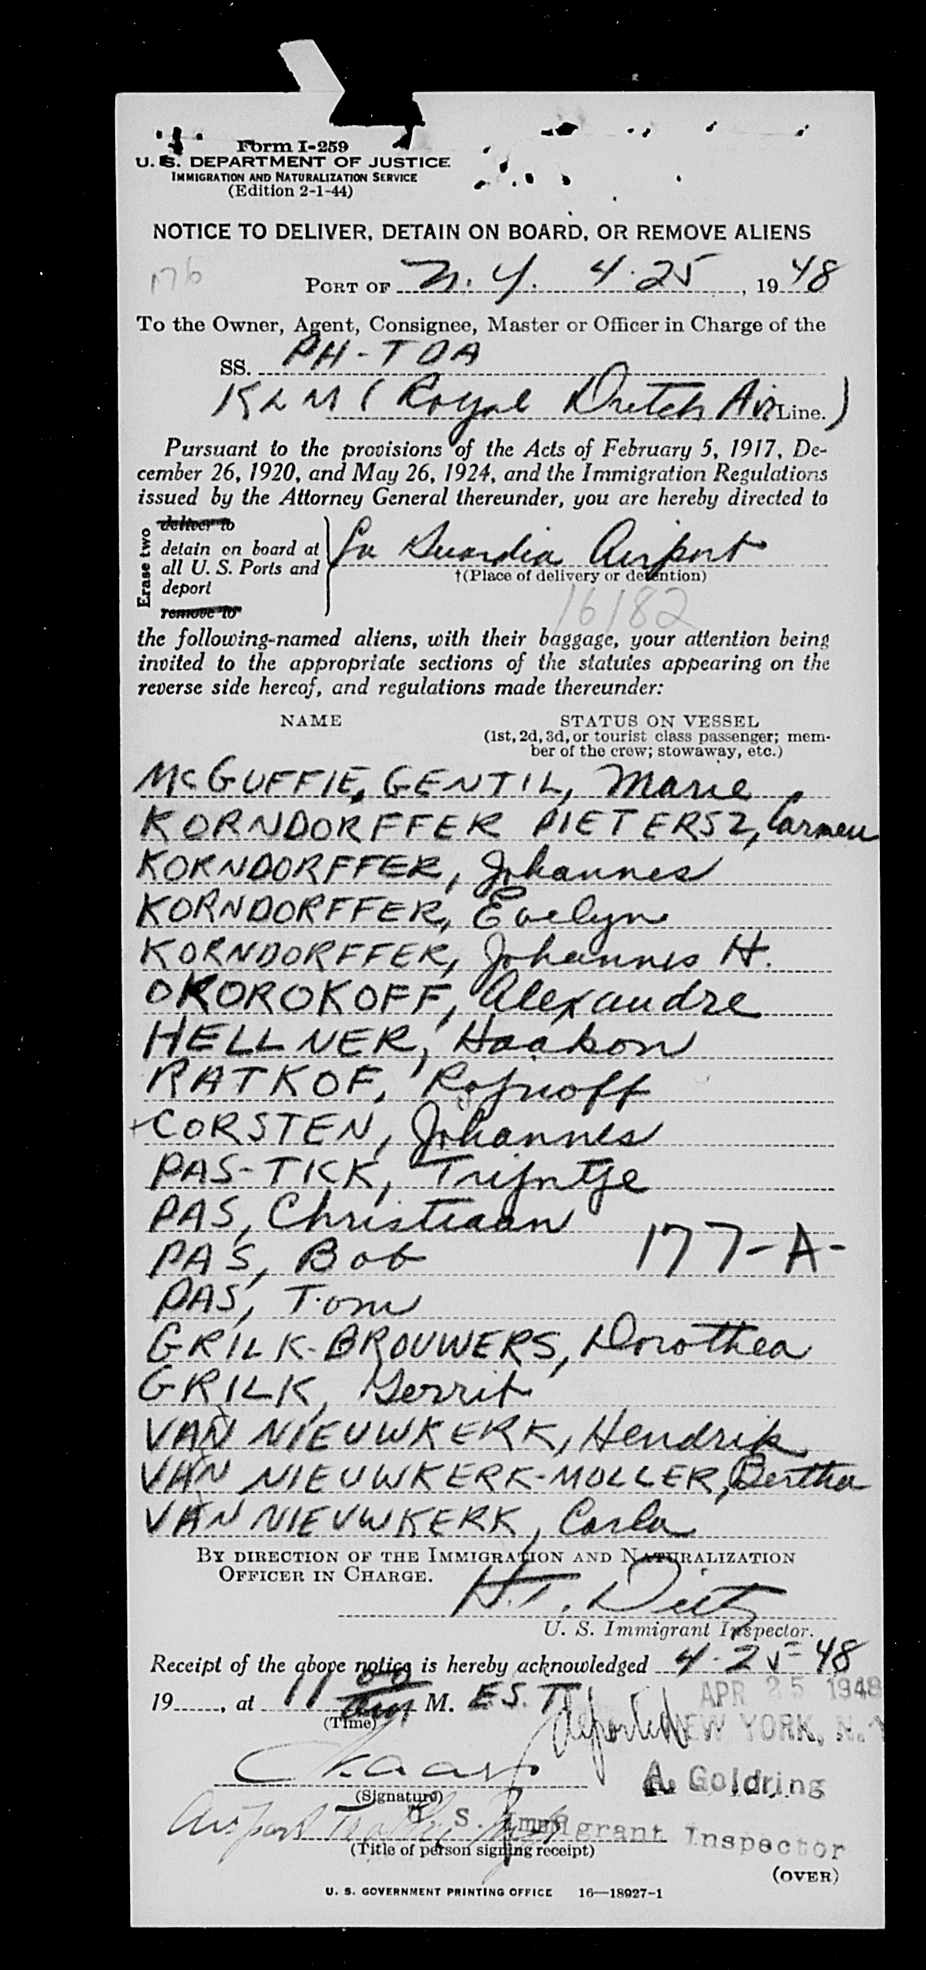 Form I-259
U. S. DEPARTMENT OF JUSTICE
IMMIGRATION AND NATURALIZATION SERVICE
(Edition 2-1-44)
NOTICE TO DELIVER, DETAIN ON BOARD, OR REMOVE ALIENS
176
PORT OF N. Y. 4-25, 1948
To the Owner, Agent, Consignee, Master or Officer in Charge of the
SS. PH-TDA
KLM (Royal Dutch Air Line.)
Pursuant to the provisions of the Acts of February 5, 1917, De-
cember 26, 1920, and May 26, 1924, and the Immigration Regulations
issued by the Attorney General thereunder, you are hereby directed to
Erase two
deliver to
detain on board at
all U. S. Ports and
deport
remove to
La Guardia Airport
†(Place of delivery or detention)
16182
the following-named aliens, with their baggage, your attention being
invited to the appropriate sections of the statutes appearing on the
reverse side hereof, and regulations made thereunder:
NAME STATUS ON VESSEL
(1st, 2d, 3d, or tourist class passenger; mem-
ber of the crew; stowaway, etc.)
McGUFFIE, GENTIL, Marie
KORNDORFFER PIETERSZ, Carmen
KORNDORFFER, Johannes
KORNDORFFER, Evelyn
KORNDORFFER, Johannes H.
OKOROKOFF, Alexandre
HELLNER, Haakon
RATKOF,
CORSTEN, Johannes
PAS-TICK, Trijntje
PAS, Christiaan
PAS, Bob 177-A-
PAS, Tom
GRILK-BROUWERS, Dorothea
GRILK, Gerrit
VAN NIEUWKERK, Hendrik
VAN NIEUWKERK-MOLLER, Bertha
VAN NIEUWKERK, Carla
BY DIRECTION OF THE IMMIGRATION AND NATURALIZATION
OFFICER IN CHARGE.
H.T. Dietz
U. S. Immigrant Inspector.
Receipt of the above notice is hereby acknowledged 4-25-48
19, at 11 00 M. E.S.T.
(Time)
deported
APR 25 1948
NEW YORK, N. Y
A. Goldring
(Signature)
U. S. Immigrant Inspector
Airport
(Title of person signing receipt)
(OVER)
U. S. GOVERNMENT PRINTING OFFICE 16—18927-1